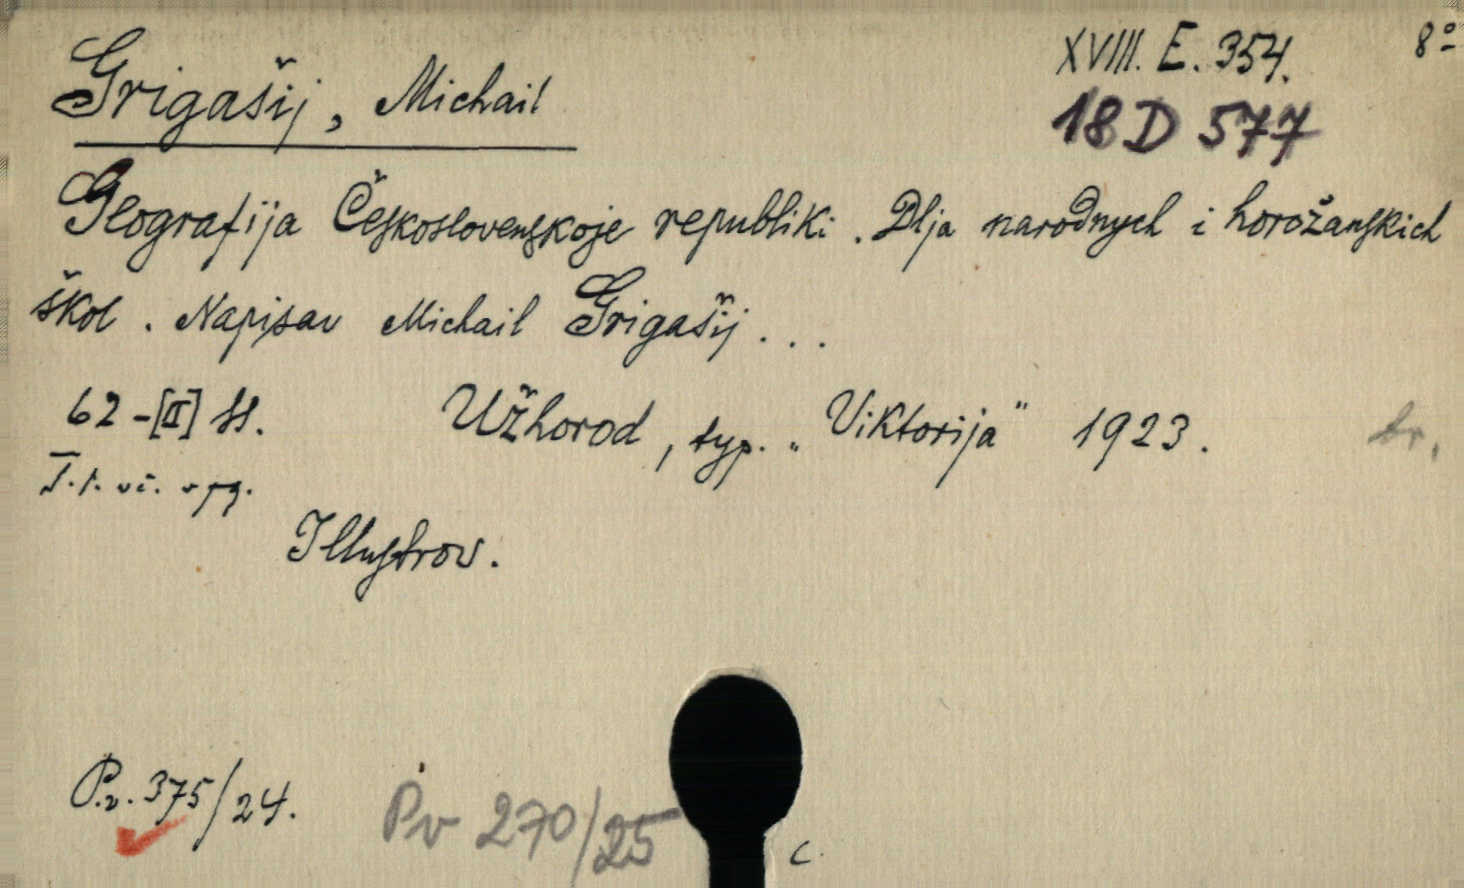 XVIII. E. 354. 8º
Grigašij, Michail
18 D 577
Geografija Československoje republiki. Dlja narodnych i horožanskich
škol. Napisav Michail Grigašij...
62-[II] ss. Užhorod, typ. „Viktorija" 1923. br.
Illustrov.
P.v. 375/24. Pv 270/25
c.